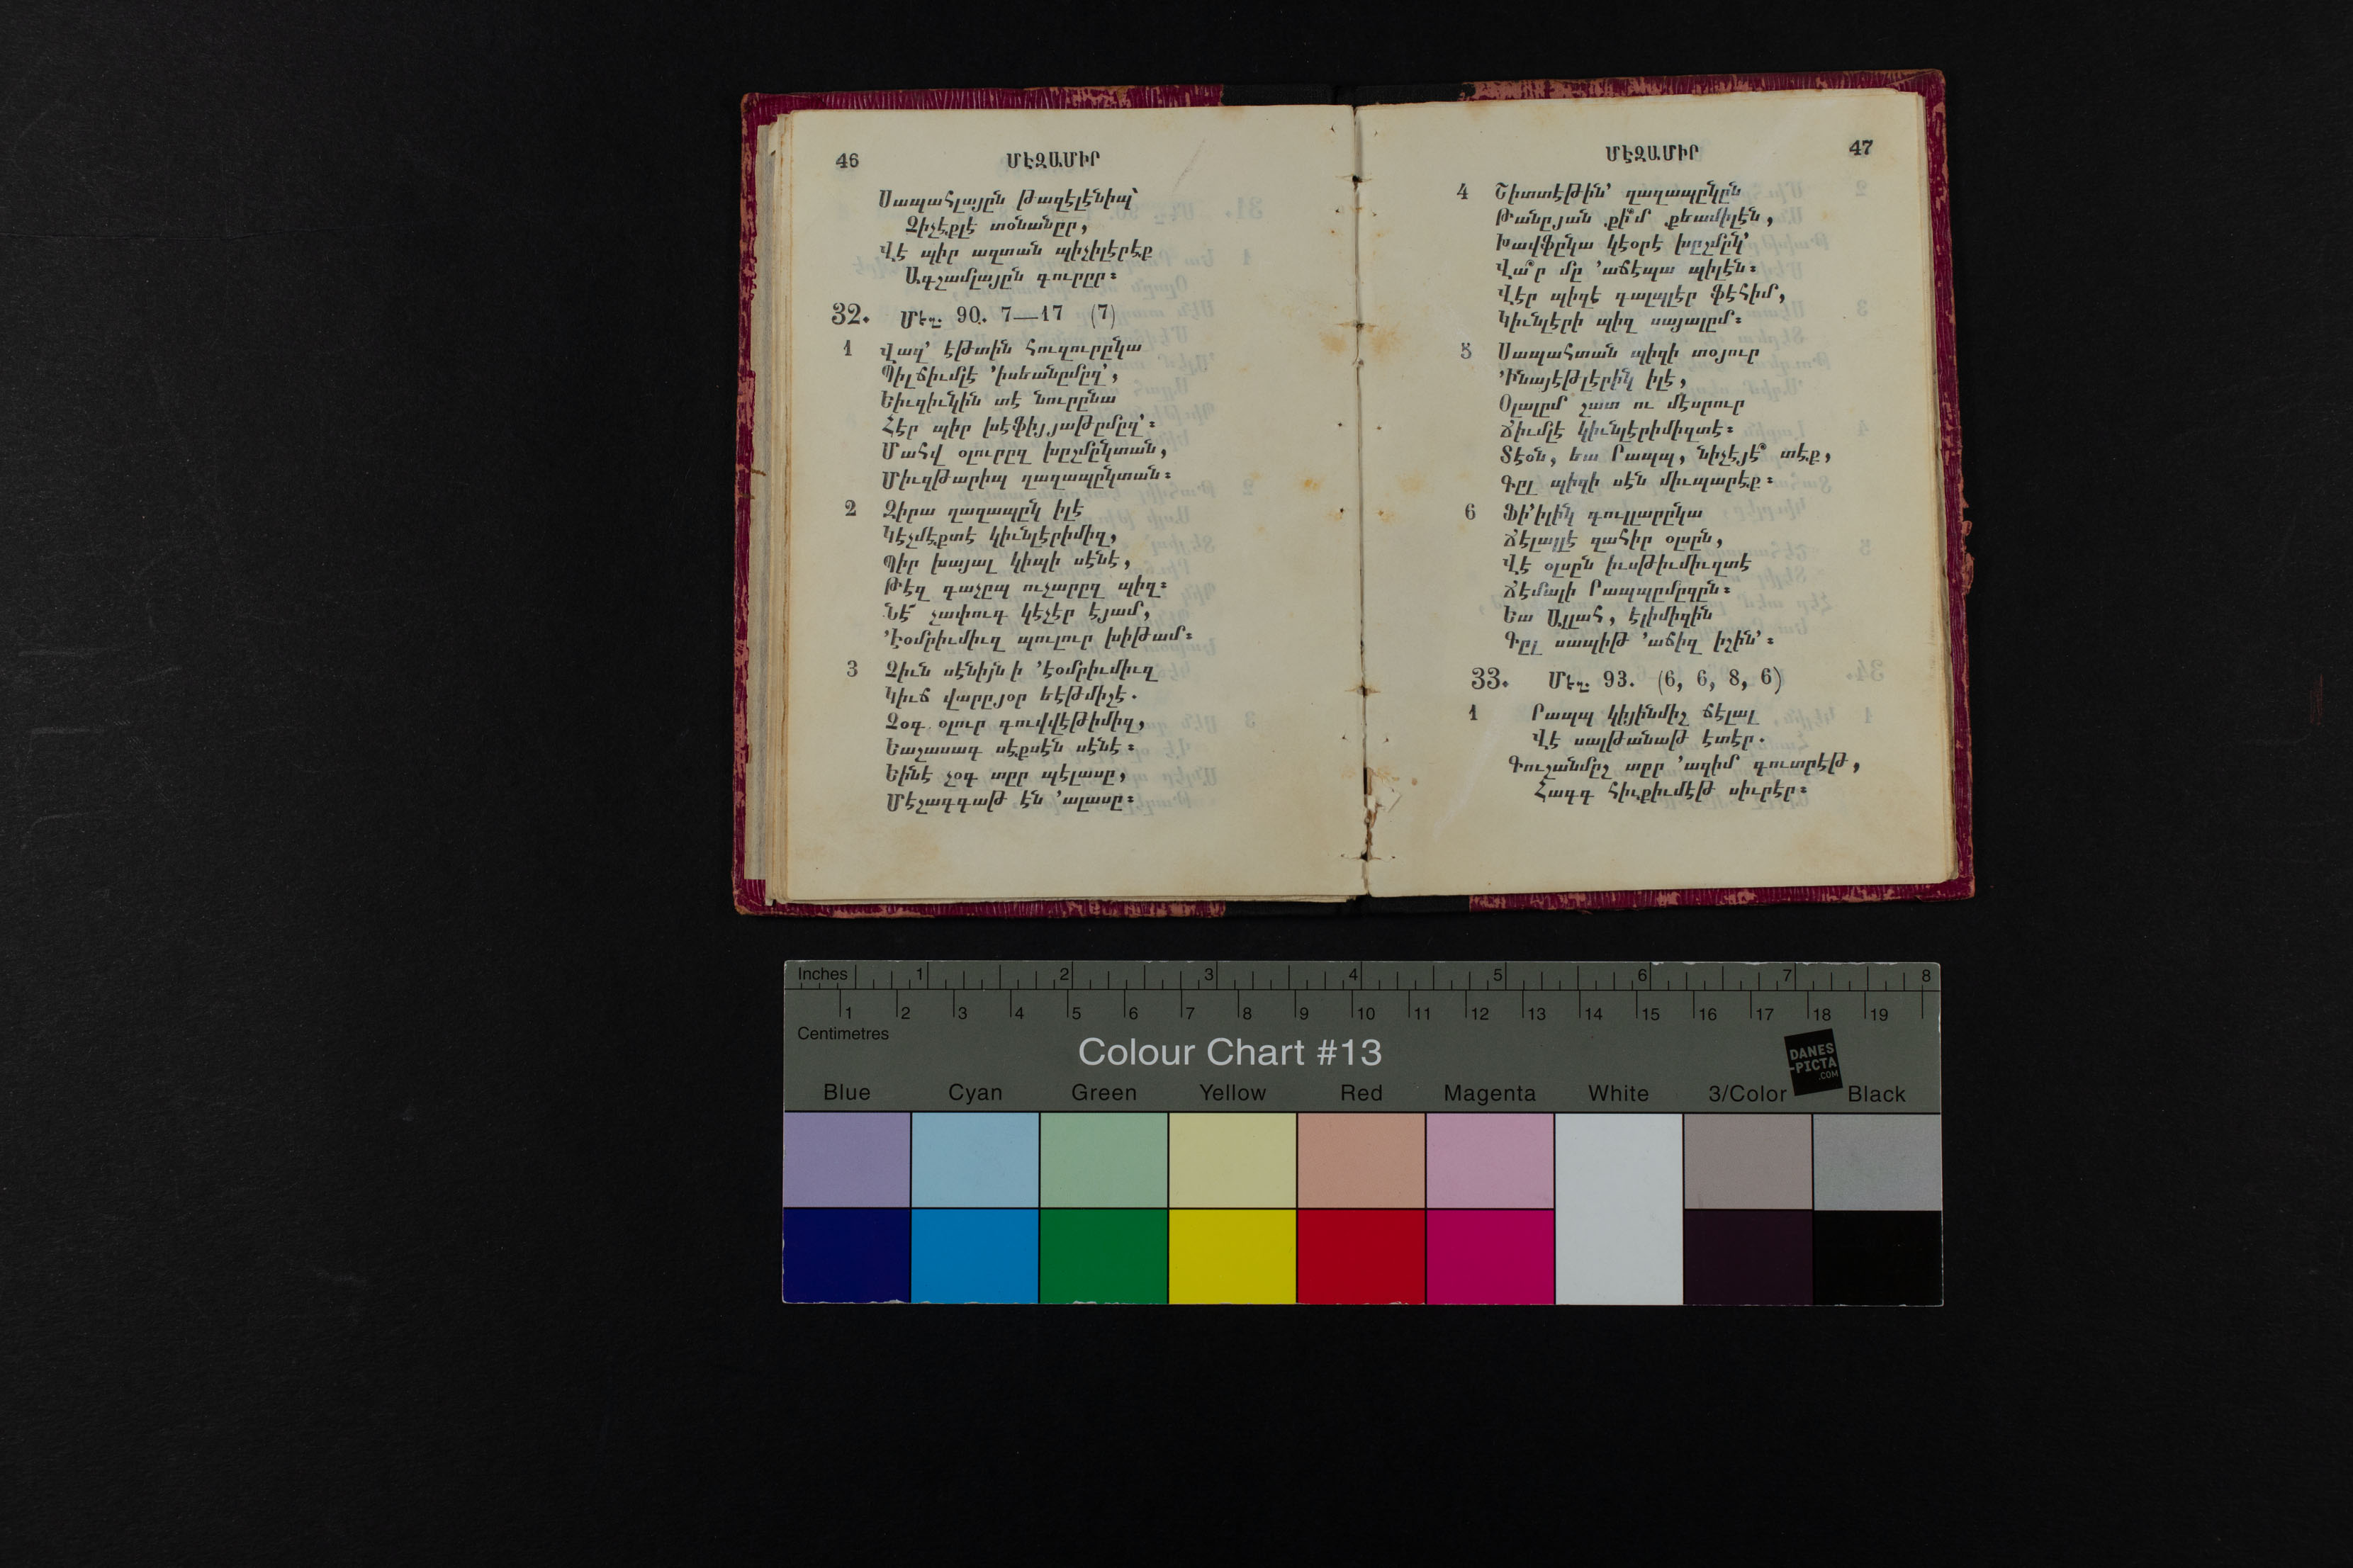 46 ՄԷԶԱՄԻՐ
Սապահլայըն թազէլէնիպ՝
Չիչէքլէ տօնանըր,
Վէ պիր ազտան պիչիլէրէք
Ագշամլայըն գուրըր։
32. Մէզ. 90. 7—17 (7)
1 Վազ՚ էթտին հուզուրընկա
Պիլճիւմլէ ՚իսեանըմըզ՚,
Եիւզիւնկին տէ նուրընա
Հէր պիր խէֆիյյաթըմըզ՚։
Մահվ օլուրըզ խըշմընկտան,
Միւզթարիպ ղաղապընկտան։
2 Զիրա ղաղապընկ իլէ
Կէչմէքտէ կիւնլէրիմիզ,
Պիր խայալ կիպի սէնէ,
Թէզ գաչըպ ուչարըզ պիզ։
Նէ՞ չափուգ կէչէր էյամ,
՚Էօմրիւմիւզ պուլուր խիթամ։
3 Չիւն սէնիյն ի ՚էօմրիւմիւզ
Կիւճ վարըյօր եէթմիշէ.
Չօգ օլուր գուվվէթիմիզ,
Եաշասագ սէքսէն սէնէ։
Եինէ չօգ տըր պէլասը,
Մէշագգաթ էն ՚ալասը։
ՄԷԶԱՄԻՐ 47
4 Շիտտէթին՚ ղաղապընկըն
Թանըյան քի՞մ քեամիլէն,
Խավֆընկա կէօրէ խըշմընկ՚
Վա՞ր մը ՚աճէպա պիլէն։
Վէր պիզէ գալպլէր ֆէհիմ,
Կիւնլէրի պիզ սայալըմ։
5 Սապահտան պիզի տօյուր
՚Ինայէթլէրինկ իլէ,
Օլալըմ շատ ու մէսրուր
Ճիւմլէ կիւնլէրիմիզտէ։
Տէօն, եա Րապպ, նիչէյէ՞ տէք,
Գըլ պիզի սէն միւպարէք։
6 Ֆի՚իլինկ գուլլարընկա
Ճէլալլէ զահիր օլսըն,
Վէ օլսըն իւսթիւմիւզտէ
Ճէմալի Րապպըմըզըն։
Եա Ալլահ, էլիմիզին
Գըլ սապիթ ՚աճիզ իշին՚։
33. Մէզ. 93. (6, 6, 8, 6)
1 Րապպ կիյինմիշ ճէլալ
Վէ սալթանաթ էտէր.
Գուշանմըշ տըր ՚ազիմ գուտրէթ,
Հագգ հիւքիւմէթ սիւրէր։
Inches 1 2 3 4 5 6 7 8
1 2 3 4 5 6 7 8 9 10 11 12 13 14 15 16 17 18 19
Centimetres
Colour Chart #13
DANES
-PICTA
.COM
Blue Cyan Green Yellow Red Magenta White 3/Color Black